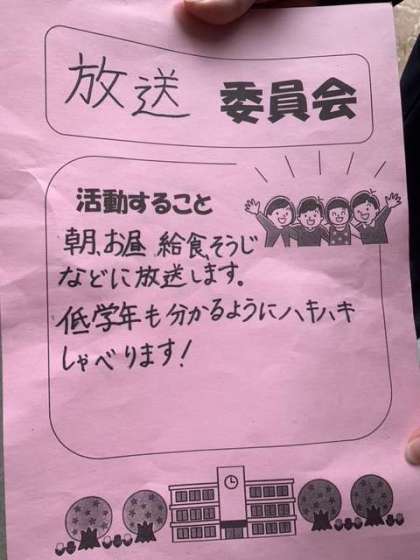 放送 委員会
活動すること
朝、お昼 給食、そうじ
などに放送します。
低学年も分かるようにハキハキ
しゃべります!